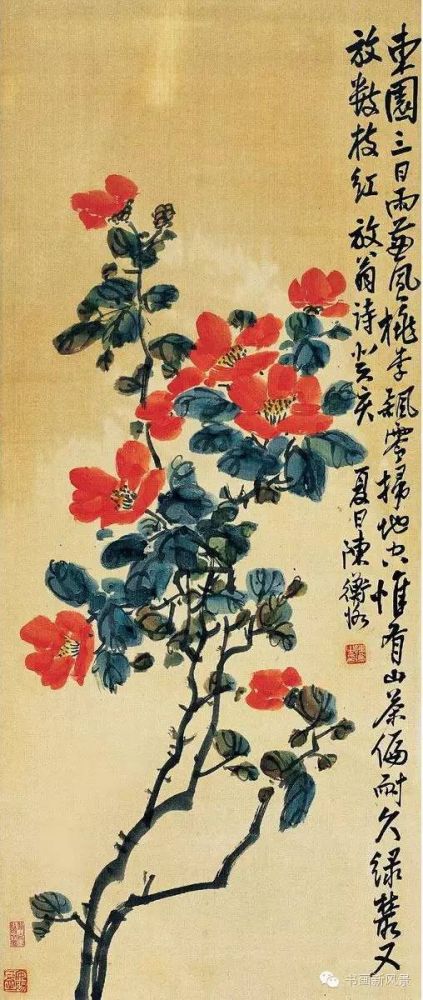 東園三日雨兼風桃李飄零掃地空惟有山茶偏耐久綠叢又
放數枝紅 放翁詩 癸亥 夏日陳衡恪
书画新风景